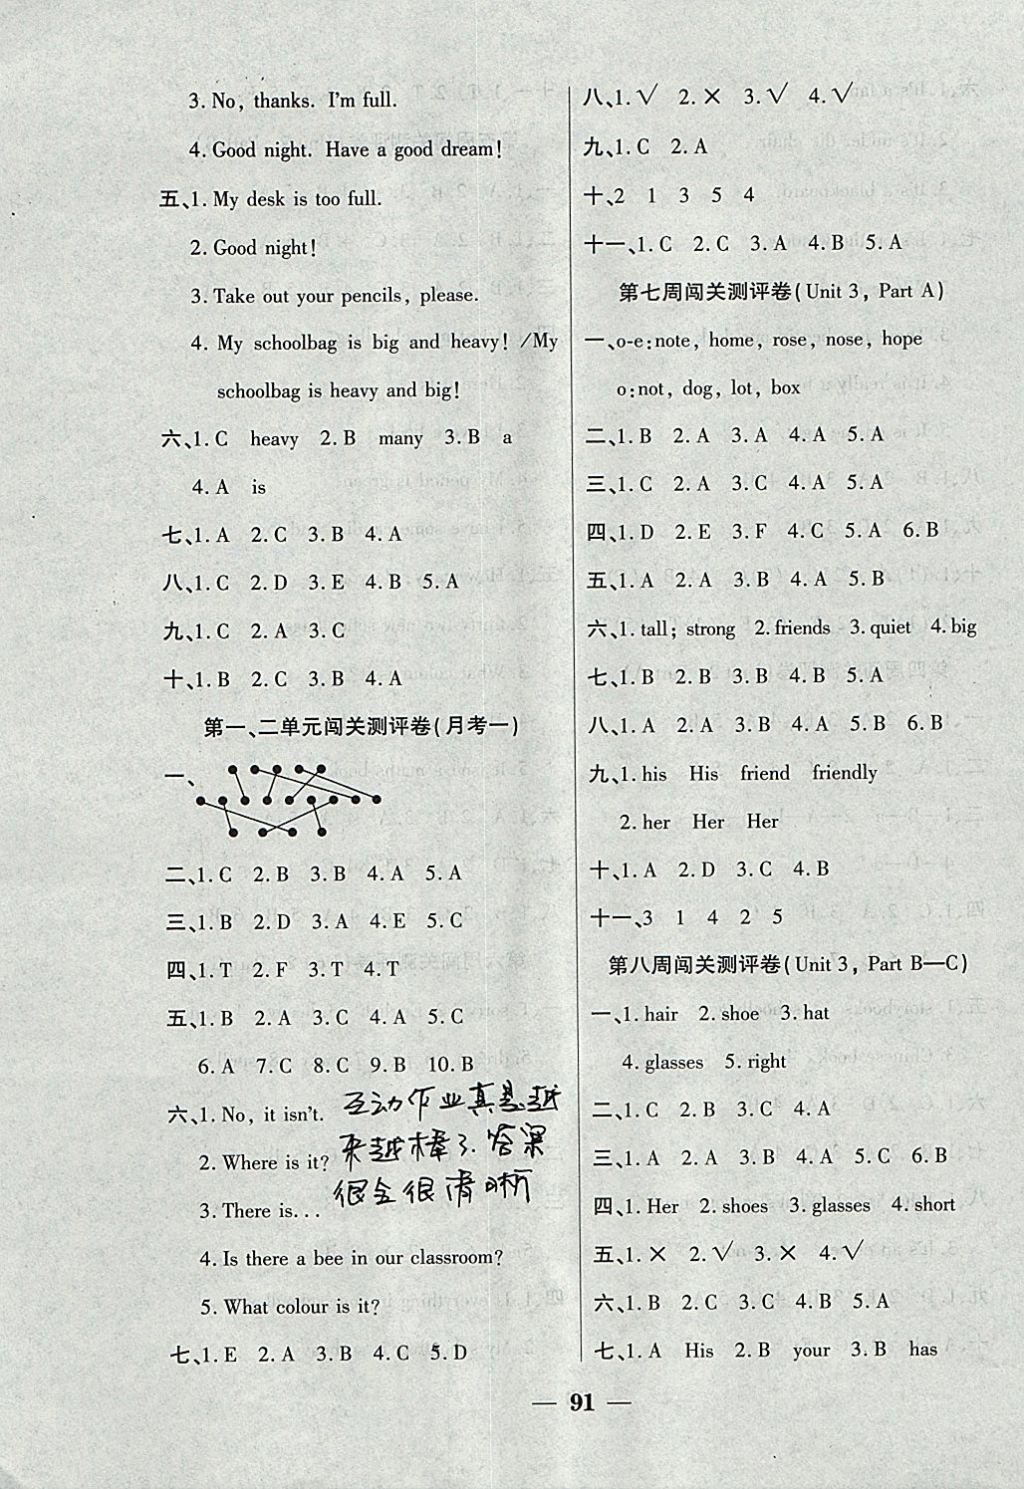 3. No, thanks. I'm full.
4. Good night. Have a good dream!
五、1. My desk is too full.
2. Good night!
3. Take out your pencils, please.
4. My schoolbag is big and heavy! /My
schoolbag is heavy and big!
六、1. C heavy 2. B many 3. B a
4. A is
七、1. A 2. C 3. B 4. A
八、1. C 2. D 3. E 4. B 5. A
九、1. C 2. A 3. C
十、1. B 2. C 3. B 4. A
第一、二单元闯关测评卷(月考一)
一、
二、1. C 2. B 3. B 4. A 5. A
三、1. B 2. D 3. A 4. E 5. C
四、1. T 2. F 3. T 4. T
五、1. B 2. A 3. C 4. A 5. C
6. A 7. C 8. C 9. B 10. B
六、1. No, it isn't.
2. Where is it?
3. There is...
4. Is there a bee in our classroom?
5. What colour is it?
七、1. E 2. A 3. B 4. C 5. D
互动作业真是越
来越棒了.答案
很全很清晰
八、1. √ 2. × 3. √ 4. √
九、1. C 2. A
十、2 1 3 5 4
十一、1. C 2. C 3. A 4. B 5. A
第七周闯关测评卷(Unit 3, Part A)
一、o-e:note, home, rose, nose, hope
o:not, dog, lot, box
二、1. B 2. A 3. A 4. A 5. A
三、1. C 2. A 3. C 4. A 5. A
四、1. D 2. E 3. F 4. C 5. A 6. B
五、1. A 2. A 3. B 4. A 5. B
六、1. tall; strong 2. friends 3. quiet 4. big
七、1. B 2. B 3. B 4. B 5. A
八、1. A 2. A 3. B 4. A 5. B 6. B
九、1. his His friend friendly
2. her Her Her
十、1. A 2. D 3. C 4. B
十一、3 1 4 2 5
第八周闯关测评卷(Unit 3, Part B—C)
一、1. hair 2. shoe 3. hat
4. glasses 5. right
二、1. C 2. B 3. C 4. A
三、1. A 2. A 3. B 4. A 5. C 6. B
四、1. Her 2. shoes 3. glasses 4. short
五、1. × 2. √ 3. × 4. √
六、1. B 2. C 3. C 4. B 5. A
七、1. A His 2. B your 3. B has
— 91 —